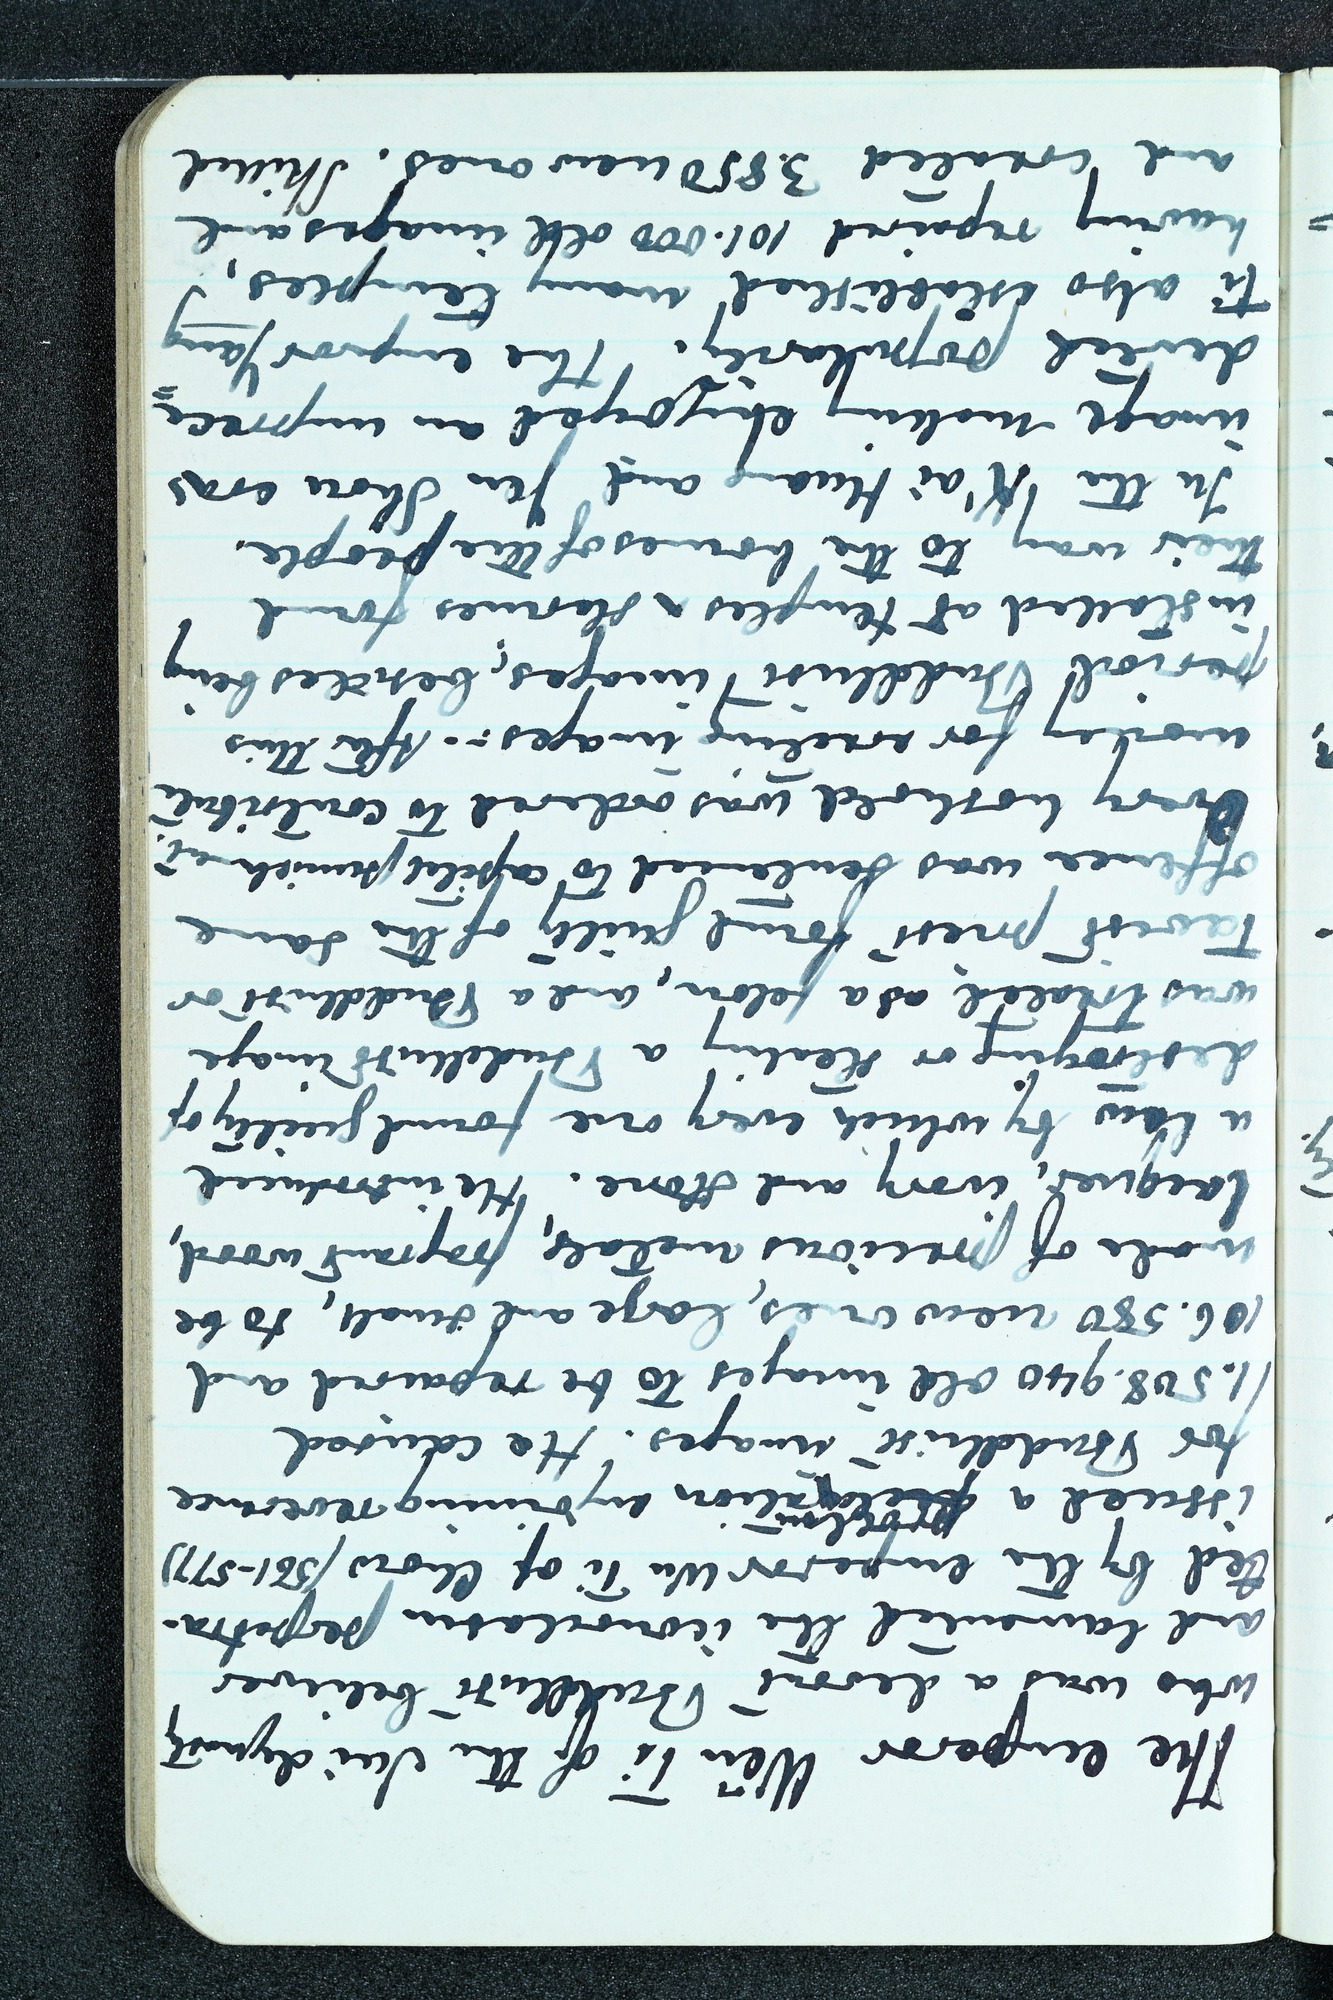 The emperor Wên Ti of the Sui dynasty
who was a devout Buddhist believer
and lamented the iconoclasm perpetra-
ted by the emperor Wu Ti of Chow (561-577)
issued a proclamation enjoining reverence
for Buddhist images. He caused
1.508.940 old images to be repaired and
106.580 new ones, large and small, to be
made of precious metals, fragrant wood,
lacquer, ivory and stone. He introduced
a law by which every one found guilty of
destroying or stealing a Buddhist image
was treated as a felon, and a Buddhist or
Taoist priest found guilty of the same
offence was sentenced to capital punishment.
Every household was ordered to contribute
money for making images. After this
period Buddhist images, besides being
installed at temples & stormes found
their way to the homes of the people.
In the K'ai Huang and Jen Shou eras
image making enjoyed an unprece=
dented popularity. The emperor Yang
Ti also established many temples,
having repaired 101.000 old images and
and created 3.850 new ones. Skilled